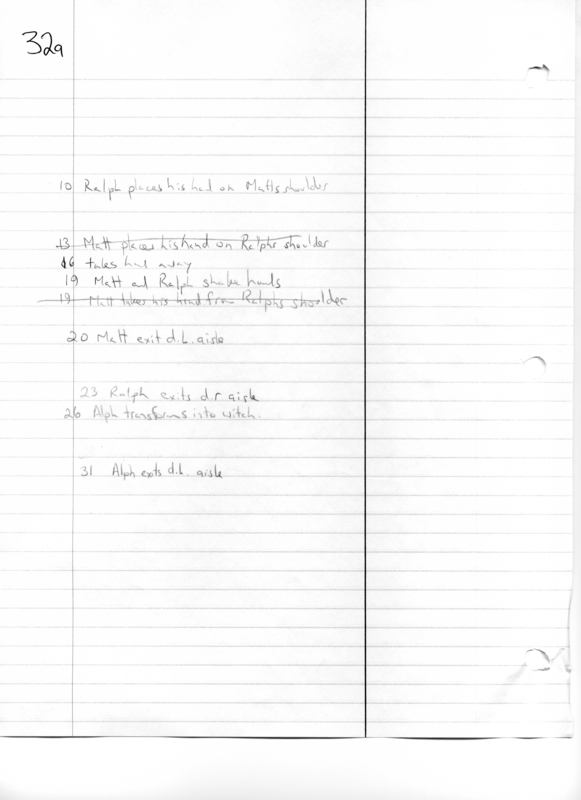 32a
10 Ralph places his had on Matts shoulder
13 Matt places his hand on Ralphs shoulder
16 takes had away
19 Matt ad Ralph shake hands
19 Matt takes his hand from Ralphs shoulder
20 Matt exit d.L. aisle
23 Ralph exits d.r aisle
26 Alph transforms into witch.
31 Alph exts d.L. aisle